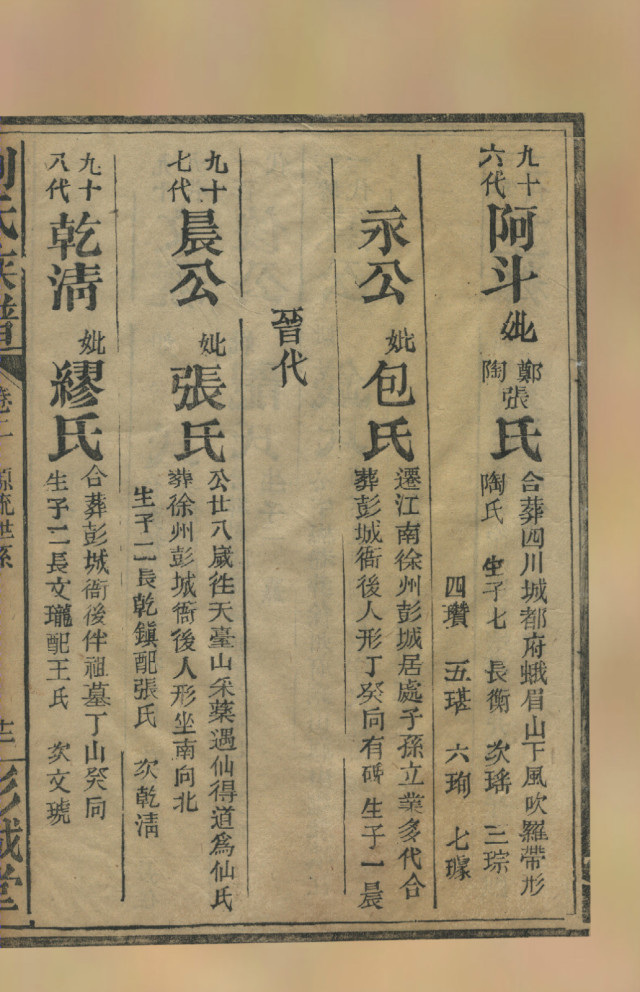 九十六代 阿斗 妣 鄭張陶氏 合葬四川城都府蛾眉山下風吹羅帶形
陶氏 生子七 長衡 次瑤 三琮
四瓚 五堪 六珣 七璩
永公 妣包氏 遷江南徐州彭城居處子孫立業多代合
葬彭城衙後人形丁癸向有碑 生子一晨
晉代
九十七代 晨公 妣張氏 公廿八歲徃天臺山采藥遇仙得道為仙氏
葬徐州彭城衙後人形坐南向北
生子二 長乾鎮配張氏 次乾清
九十八代 乾清 妣繆氏 合葬彭城衙後伴祖墓丁山癸向
生子二 長文瓏配王氏 次文琥
劉氏族譜 卷二 源流世系 彭城堂